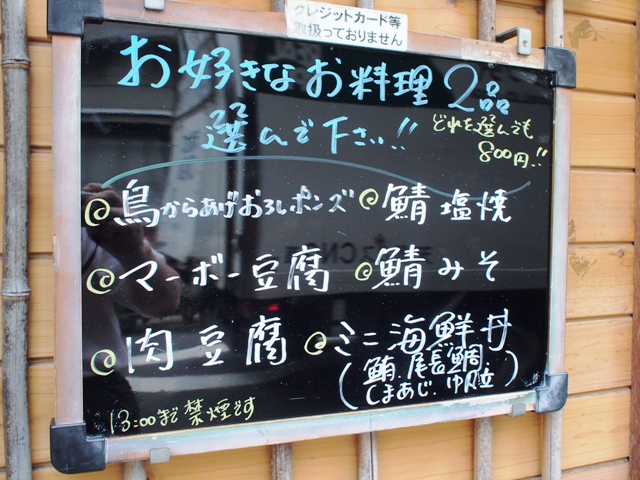 クレジットカード等
取扱っておりません
お好きなお料理2品
選んで下さい!!
どれを選んでも
800円!!
鳥からあげおろしポンズ
鯖塩焼
マーボー豆腐
鯖みそ
肉豆腐
ミニ海鮮丼
(鮪、尾長鯛
しまあじ、ゆば)
13:00まで禁煙です